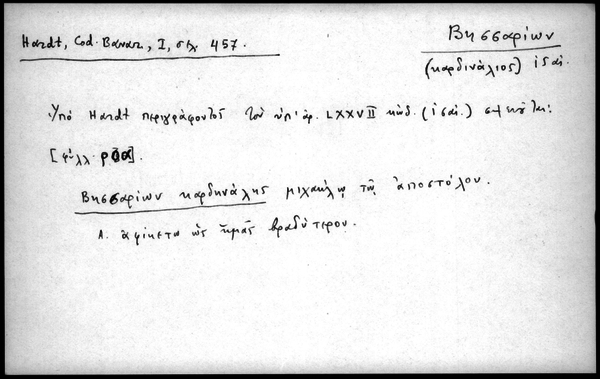 Hardt, Cod. Bavar., I, σελ 457.
Βησσαρίων
(καρδινάλιος) ἰδαι.
Ὑπὸ Hardt περιγράφοντος τοῦ ὑπ' ἀρ. LXXVII κώδ. (ἰσαι.)
[φύλλ. ρθα].
Βησσαρίων καρδηνάλης μιχαήλῳ τῷ ἀποστόλου.
Α. ἀφίκετο ὡς ἡμᾶς βραδύτερον.